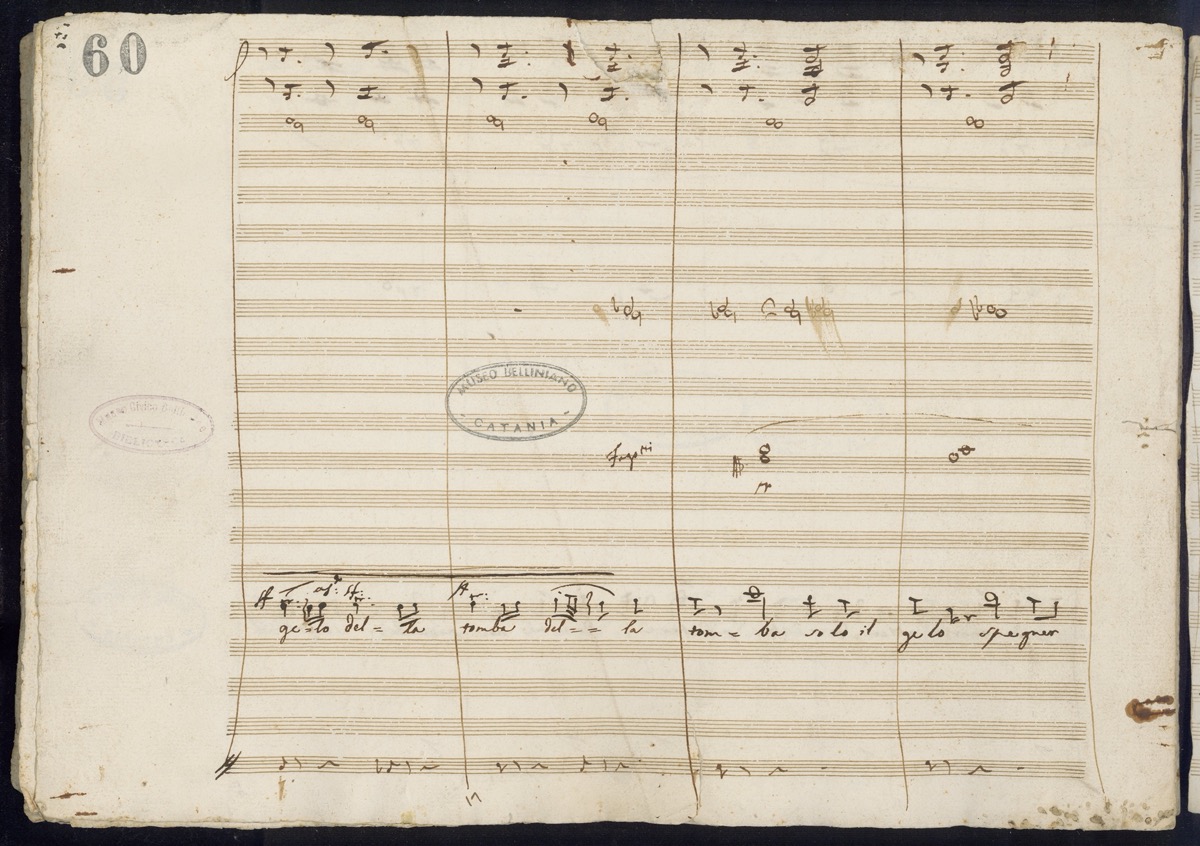 60
MUSEO BELLINIANO
CATANIA
Fagotti
ge=lo del= la tomba del== la tom= ba solo il gelo spegner